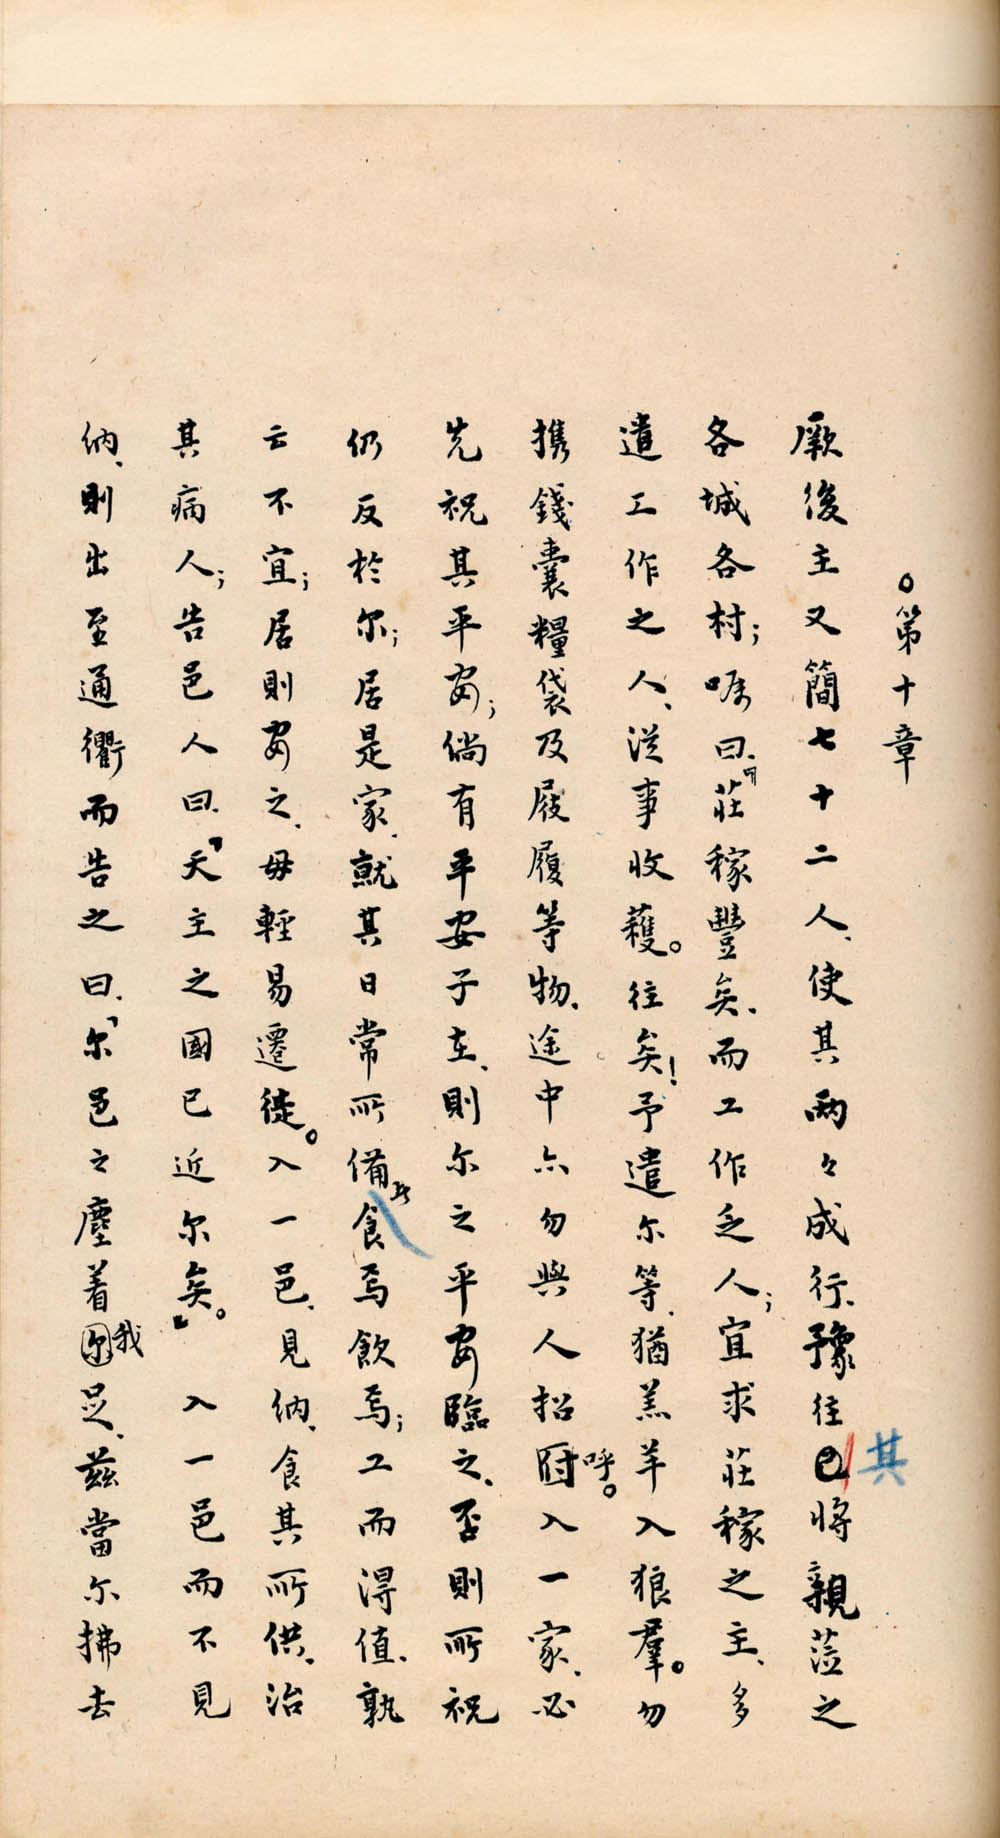 ○第十章
厥後主又簡七十二人、使其兩々成行、豫往其將親蒞之
各城各村；囑曰、「莊稼豐矣、而工作乏人；宜求莊稼之主、多
遣工作之人、從事收穫。往矣！予遣尔等、猶羔羊入狼羣。勿
携錢囊糧袋及屐履等物、途中亦勿與人招呼。入一家、必
先祝其平安；倘有平安子在、則尔之平安臨之、否則所祝
仍反於尔；居是家、就其日常所備、食焉飲焉；工而得值、孰
云不宜；居則安之、毋輕易遷徙。入一邑、見納、食其所供、治
其病人；告邑人曰、『天主之國已近尔矣。』入一邑而不見
納、則出至通衢而告之曰、『尔邑之塵着我足、茲當尔拂去